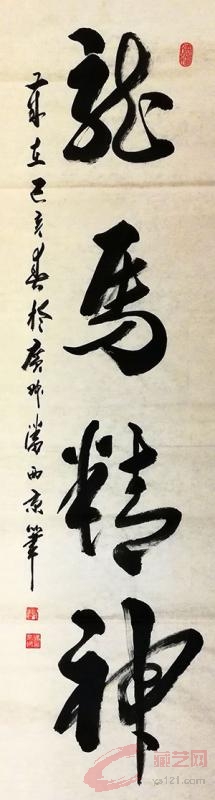 龍馬精神
歲在己亥春於廣州潘西京筆
藏艺网
ya121.com